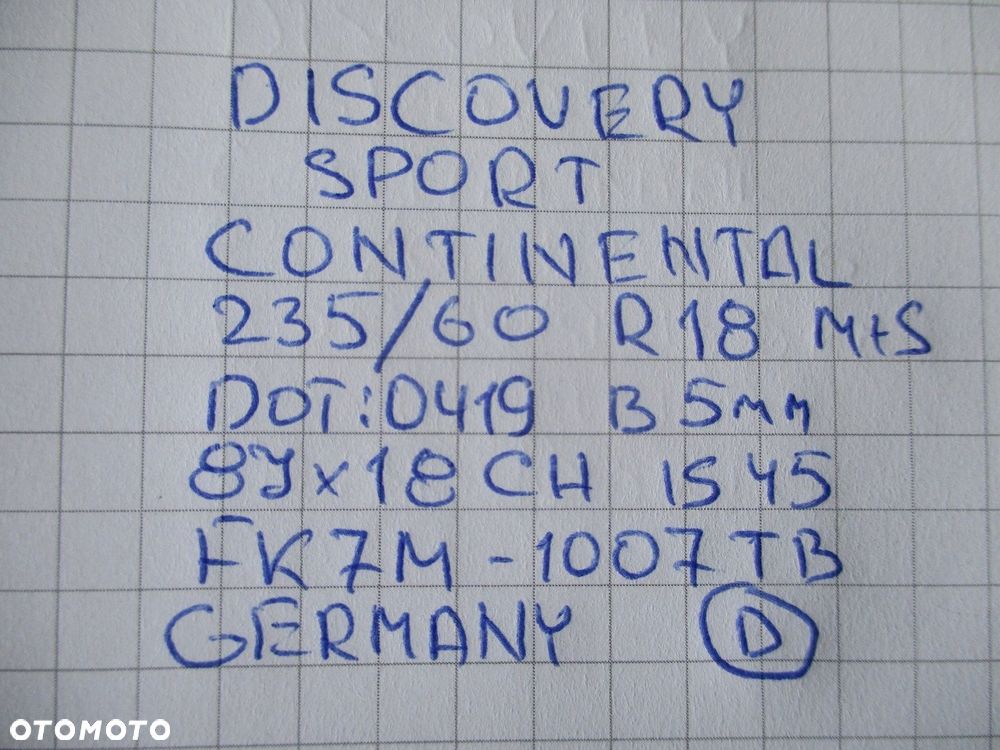 DISCOVERY
SPORT
CONTINENTAL
235/60 R18 M+S
DOT:0419 B 5mm
8Jx18 CH IS 45
FK7M-1007TB
GERMANY D
OTOMOTO